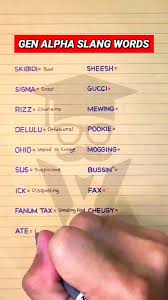 GEN ALPHA SLANG WORDS
SKIBIDI = Bad
SHEESH =
SIGMA = Good
GUCCI =
RIZZ = Charisma
MEWING =
DELULU = Delusional
POOKIE =
OHIO = Weird or Cringe
MOGGING =
SUS = Suspicious
BUSSIN' =
ICK = Disgusting
FAX =
FANUM TAX = Stealing Food
CHEUGY =
ATE =